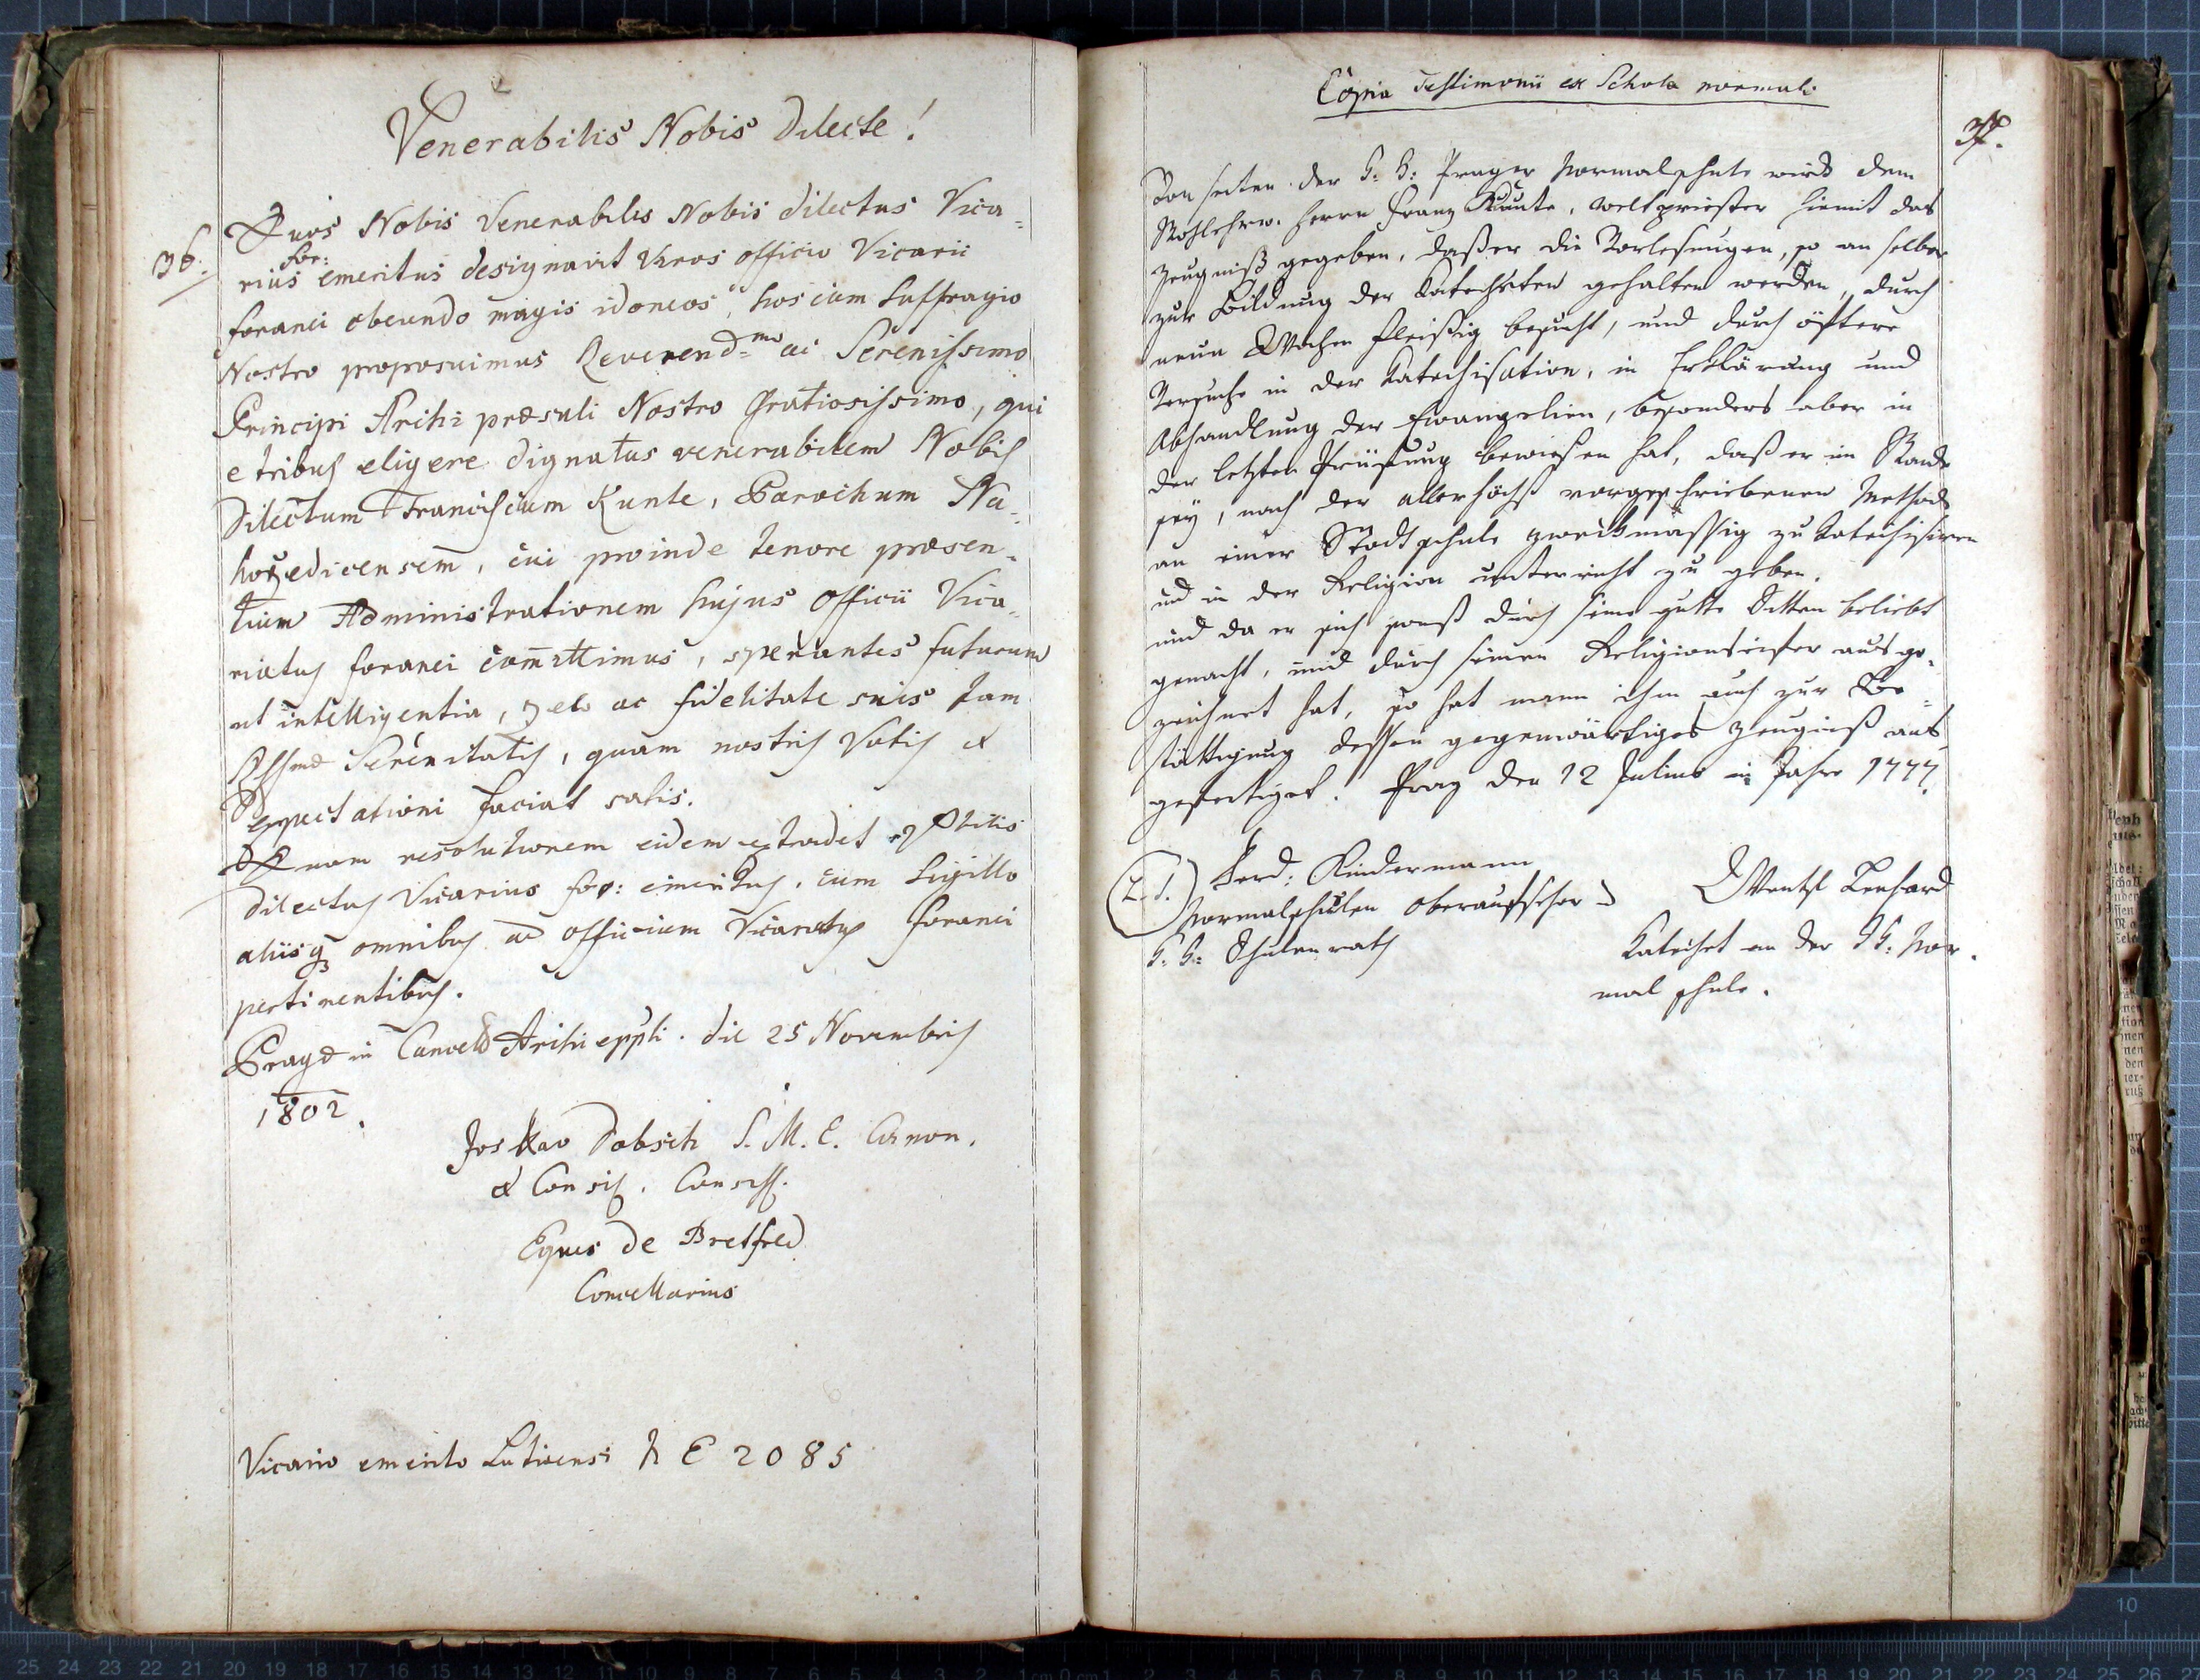 Venerabilis Nobis Dilecte!
36.
Quos Nobis Venerabilis Nobis dilectus Vica-
for:
rius emeritus designavit Viros officio Vicarii
foranei obeundo magis idoneos, hos cum suffragio
Nostro proposuimus Reverendmo ac Serenissimo
Principi Archi-præsuli Nostro Gratiosissimo, qui
e tribus eligere dignatus venerabilem Nobis
Dilectum Franciscum Kunte, Parochum Na-
hořediccensem, cui proinde tenore præsen-
tium Administrationem hujus officii Vica-
riatus foranei committimus, sperantes futurum
ut intelligentia, zelo ac fidelitate suis tam
Serenitatis, quam nostris Votis et
expectationi faciat satis.
Quam resolutionem eidem extradet
dilectus Vicarius for: emeritus, cum Sigillo
aliisq omnibus ad officium Vicariatus foranei
pertinentibus.
Pragæ in Cancell Archi eppli. die 25 Novembris
1802.
Jos Dobsch S. M. E. Canon.
et Consil. Consist.
Eques de Bretfeld
Cancellarius
Vicario emerito N E 2085
Copia Testimonii ex Schola normali
37.
Von seiten der k: k: Prager Normalschule wird dem
Wohlehrw. Herrn Franz Kunte, Weltpriester hiemit das
Zeugniß gegeben, daß er die Vorlesungen, so an selber
zur Bildung der Katecheten gehalten werden, durch
neun Wochen fleißig besucht, und durch öftere
Versuche in der Katechisation, in Erklärung und
Abhandlung der Evangelien, besonders aber in
der letzten Prüfung bewiesen hat, daß er im Stande
sey, nach der allerhöchst vorgeschriebenen Methode
an einer Stadtschule zweckmässig zu katechisiren
und in der Religion unterricht zu geben.
und da er sich sonst durch seine gutte Sitten beliebt
gemacht, und durch seinen Religionseifer ausge-
zeichnet hat, so hat mann ihm auch zur Be-
stättigung dessen gegenwärtiges Zeugniß aus-
gefertiget. Prag den 12 Julius im Jahre 1777.
L. S.
Ferd: Kindermann
Normalschulen Oberaufseher
k: k: Schulenrath
Wentzl Lenhard
Katechet an der k k: Nor-
mal schule.